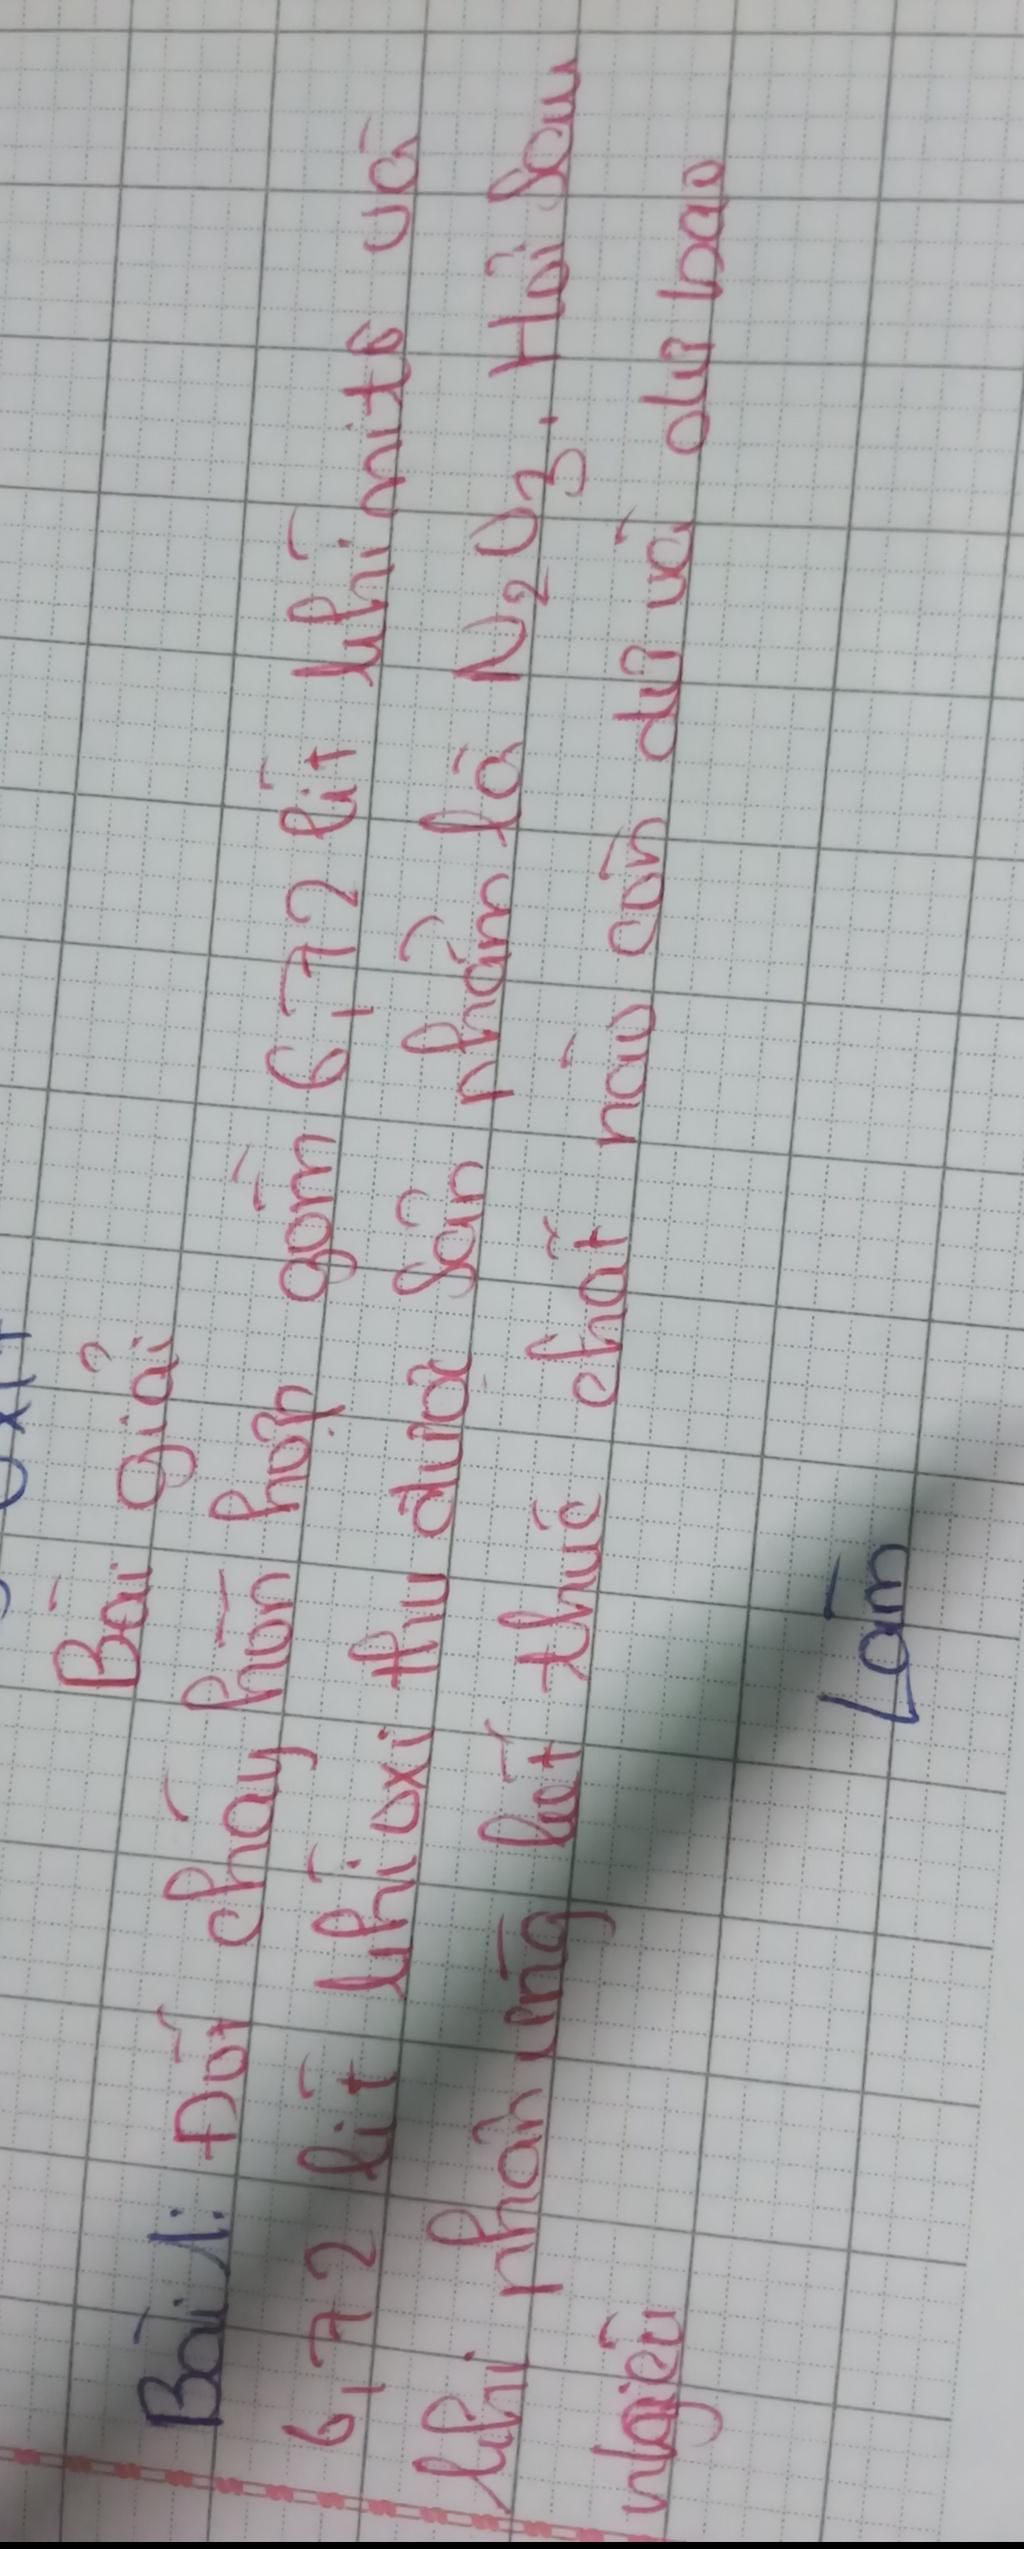 Bài giải
Bài 1: Đốt cháy hỗn hợp gồm 6,72 lít khí nitơ và
6,72 lít khí oxi thu được sản phẩm là N2O3. Hỏi sau
khi phản ứng kết thúc chất nào còn dư và dư bao
nhiêu
Làm